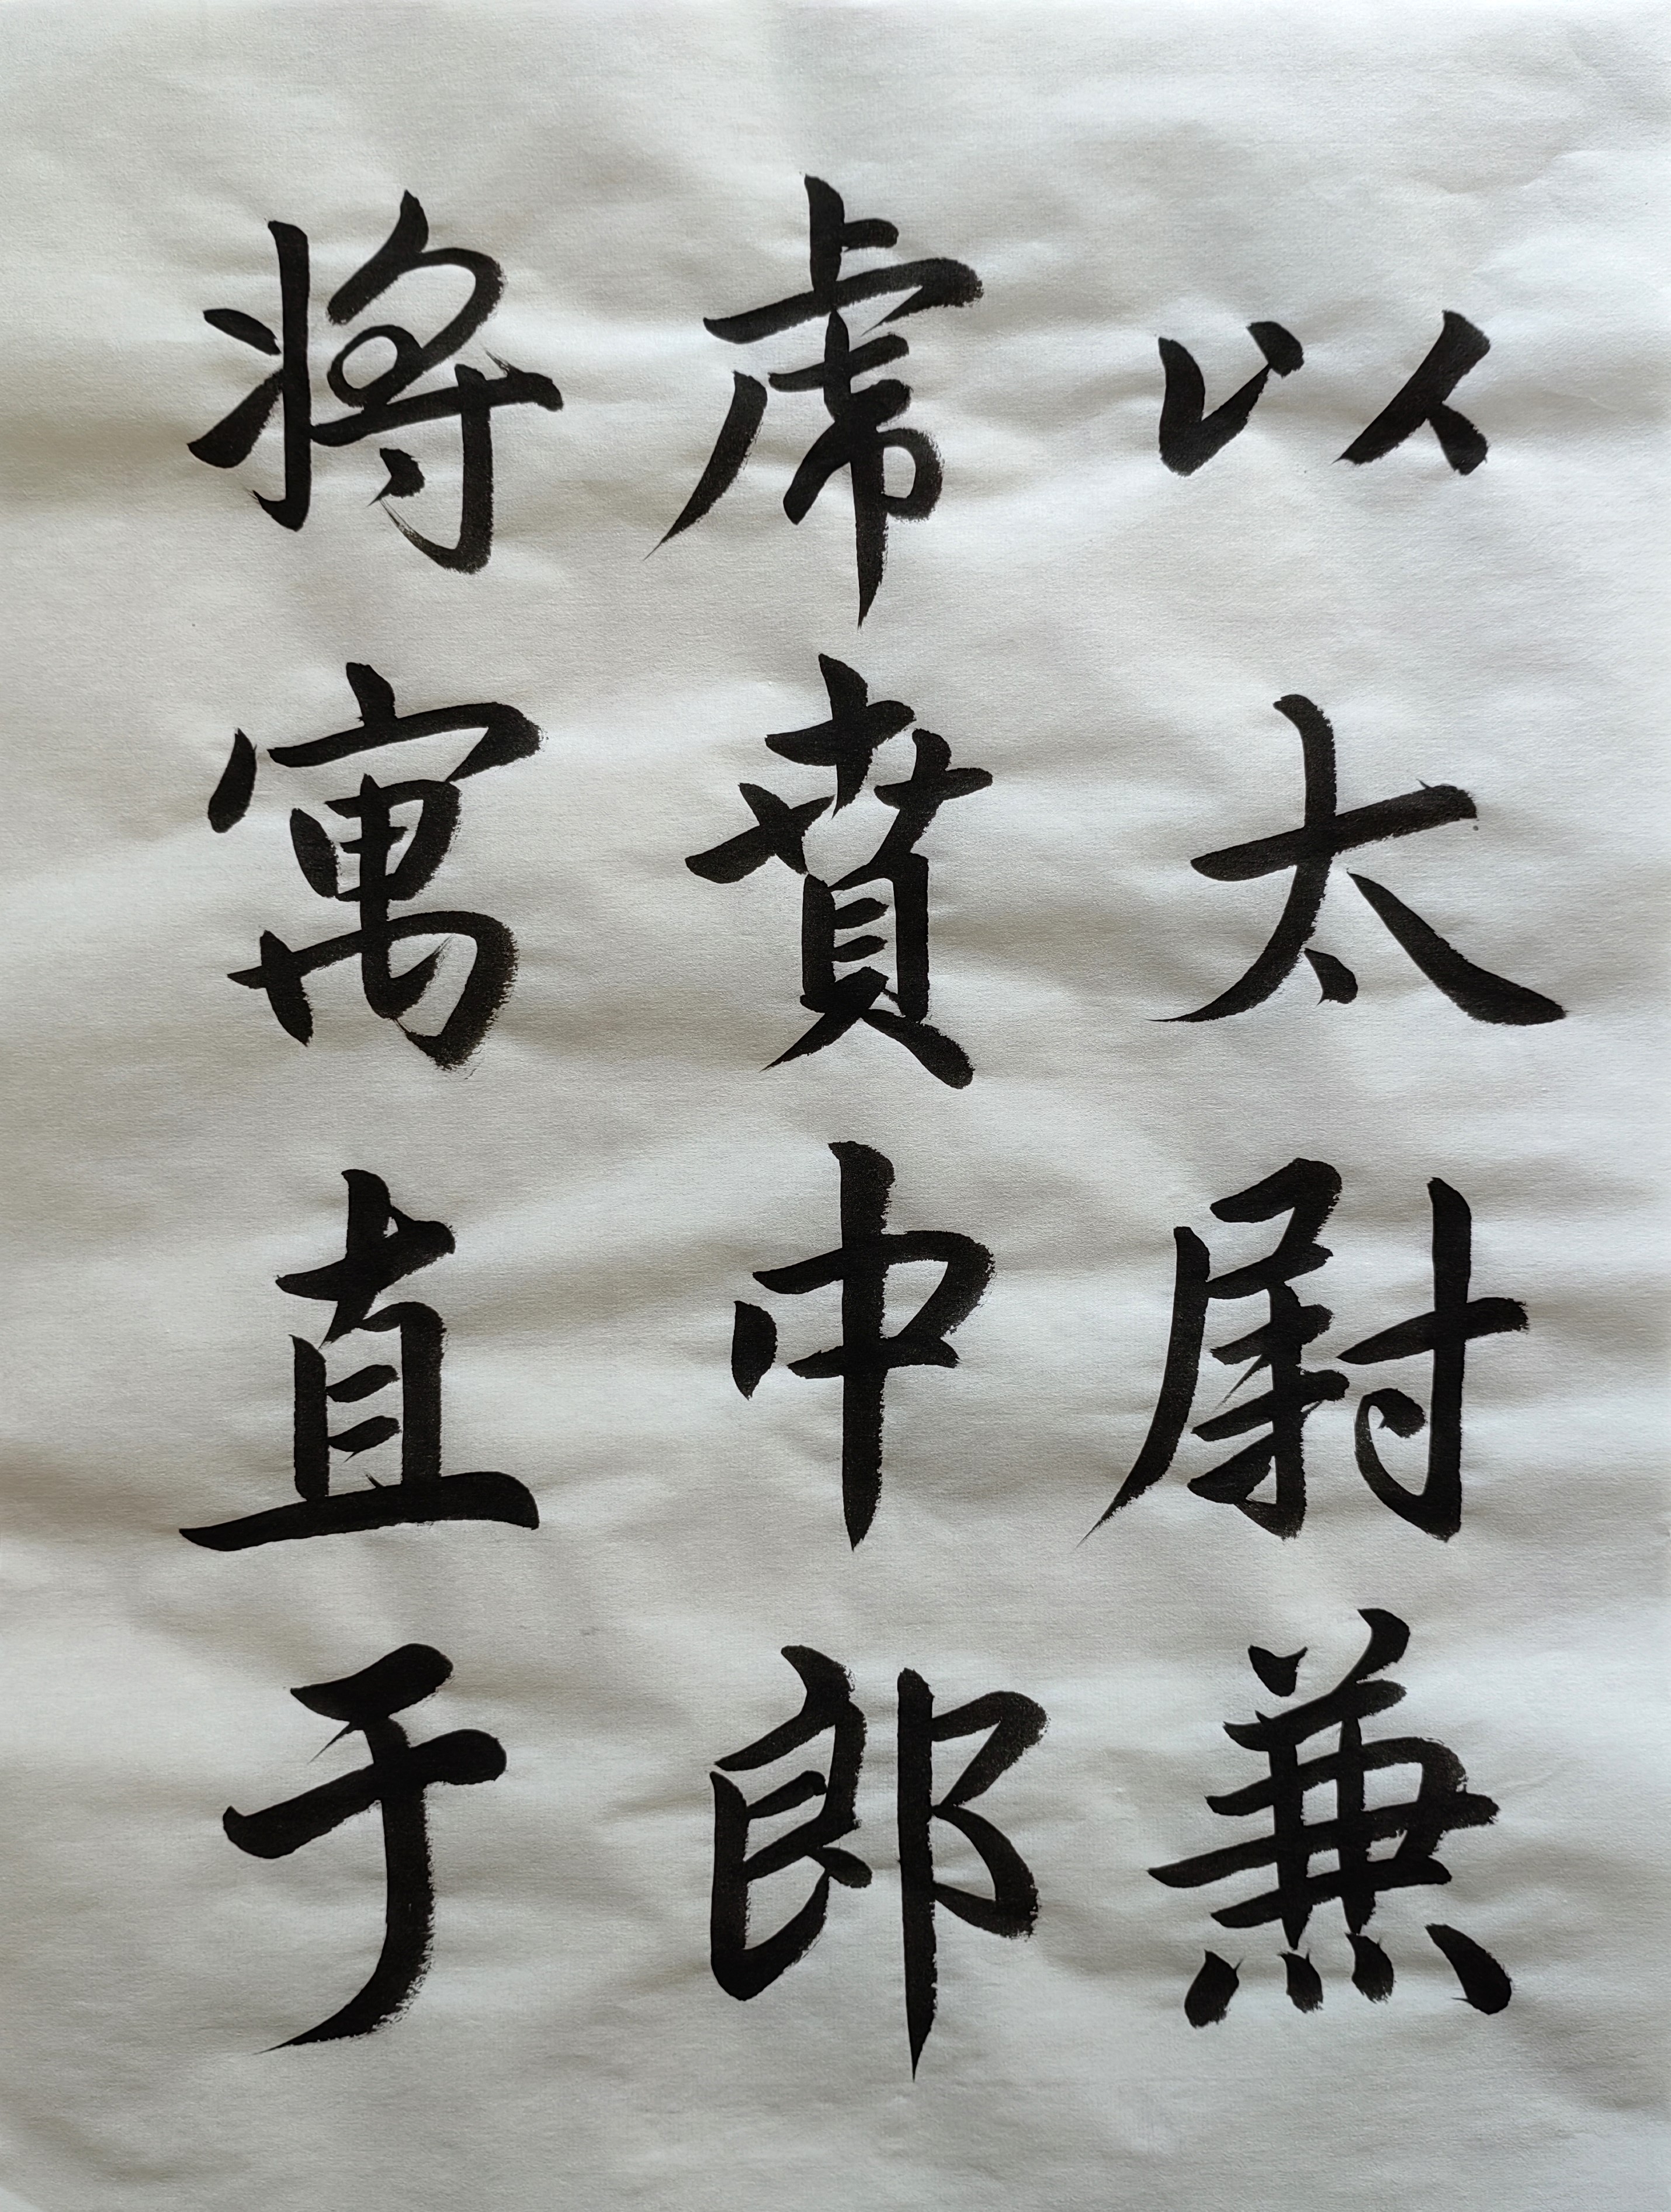 以太尉兼
虎賁中郎
将寓直于